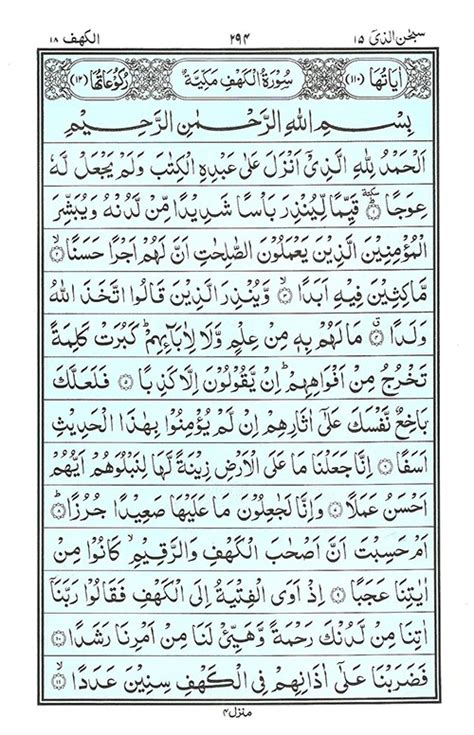 سبحٰن الذیٓ ١٥ ٢٩٤ الكهف ١٨
اٰيَاتُهَا (١١٠) سُوْرَةُ الْكَهْفِ مَكِّيَّةٌ رُكُوْعَاتُهَا (١٢)
بِسْمِ اللّٰهِ الرَّحْمٰنِ الرَّحِيْمِ
اَلْحَمْدُ لِلّٰهِ الَّذِيْٓ اَنْزَلَ عَلٰى عَبْدِهِ الْكِتٰبَ وَلَمْ يَجْعَلْ لَّهٗ
عِوَجًا ۜ ١ قَيِّمًا لِّيُنْذِرَ بَاْسًا شَدِيْدًا مِّنْ لَّدُنْهُ وَيُبَشِّرَ
الْمُؤْمِنِيْنَ الَّذِيْنَ يَعْمَلُوْنَ الصّٰلِحٰتِ اَنَّ لَهُمْ اَجْرًا حَسَنًا ٢
مَّاكِثِيْنَ فِيْهِ اَبَدًا ٣ وَّيُنْذِرَ الَّذِيْنَ قَالُوا اتَّخَذَ اللّٰهُ
وَلَدًا ٤ مَا لَهُمْ بِهٖ مِنْ عِلْمٍ وَّلَا لِاٰبَآئِهِمْ ؕ كَبُرَتْ كَلِمَةً
تَخْرُجُ مِنْ اَفْوَاهِهِمْ ؕ اِنْ يَّقُوْلُوْنَ اِلَّا كَذِبًا ٥ فَلَعَلَّكَ
بَاخِعٌ نَّفْسَكَ عَلٰٓى اٰثَارِهِمْ اِنْ لَّمْ يُؤْمِنُوْا بِهٰذَا الْحَدِيْثِ
اَسَفًا ٦ اِنَّا جَعَلْنَا مَا عَلَى الْاَرْضِ زِيْنَةً لَّهَا لِنَبْلُوَهُمْ اَيُّهُمْ
اَحْسَنُ عَمَلًا ٧ وَاِنَّا لَجٰعِلُوْنَ مَا عَلَيْهَا صَعِيْدًا جُرُزًا ؕ ٨
اَمْ حَسِبْتَ اَنَّ اَصْحٰبَ الْكَهْفِ وَالرَّقِيْمِ ۙ كَانُوْا مِنْ
اٰيٰتِنَا عَجَبًا ٩ اِذْ اَوَى الْفِتْيَةُ اِلَى الْكَهْفِ فَقَالُوْا رَبَّنَآ
اٰتِنَا مِنْ لَّدُنْكَ رَحْمَةً وَّهَيِّئْ لَنَا مِنْ اَمْرِنَا رَشَدًا ١٠
فَضَرَبْنَا عَلٰٓى اٰذَانِهِمْ فِي الْكَهْفِ سِنِيْنَ عَدَدًا ١١
منزل ٤